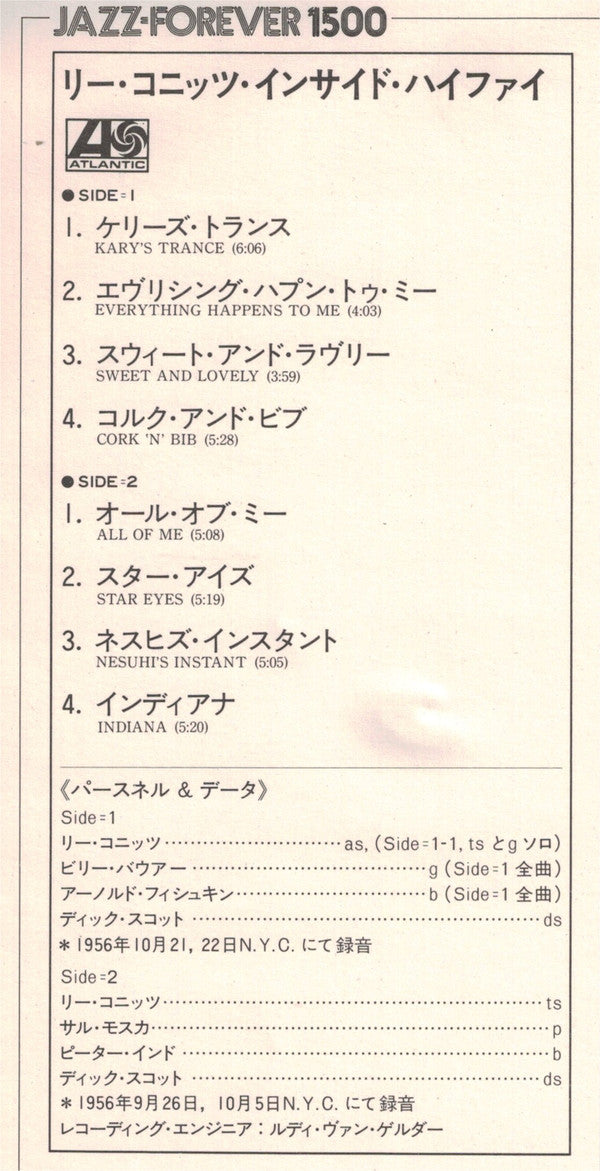 JAZZ-FOREVER 1500
リー・コニッツ・インサイド・ハイファイ
ATLANTIC
●SIDE=1
1. ケリーズ・トランス
KARY'S TRANCE (6:06)
2. エヴリシング・ハプン・トゥ・ミー
EVERYTHING HAPPENS TO ME (4:03)
3. スウィート・アンド・ラヴリー
SWEET AND LOVELY (3:59)
4. コルク・アンド・ビブ
CORK 'N' BIB (5:28)
●SIDE=2
1. オール・オブ・ミー
ALL OF ME (5:08)
2. スター・アイズ
STAR EYES (5:19)
3. ネスヒズ・インスタント
NESUHI'S INSTANT (5:05)
4. インディアナ
INDIANA (5:20)
《パースネル & データ》
Side=1
リー・コニッツ……………………as, (Side=1-1, ts とg ソロ)
ビリー・バウアー……………………g (Side=1 全曲)
アーノルド・フィシュキン……………………b (Side=1 全曲)
ディック・スコット……………………ds
* 1956年10月21, 22日N.Y.C. にて録音
Side=2
リー・コニッツ……………………ts
サル・モスカ……………………p
ピーター・インド……………………b
ディック・スコット……………………ds
* 1956年9月26日, 10月5日N.Y.C. にて録音
レコーディング・エンジニア：ルディ・ヴァン・ゲルダー